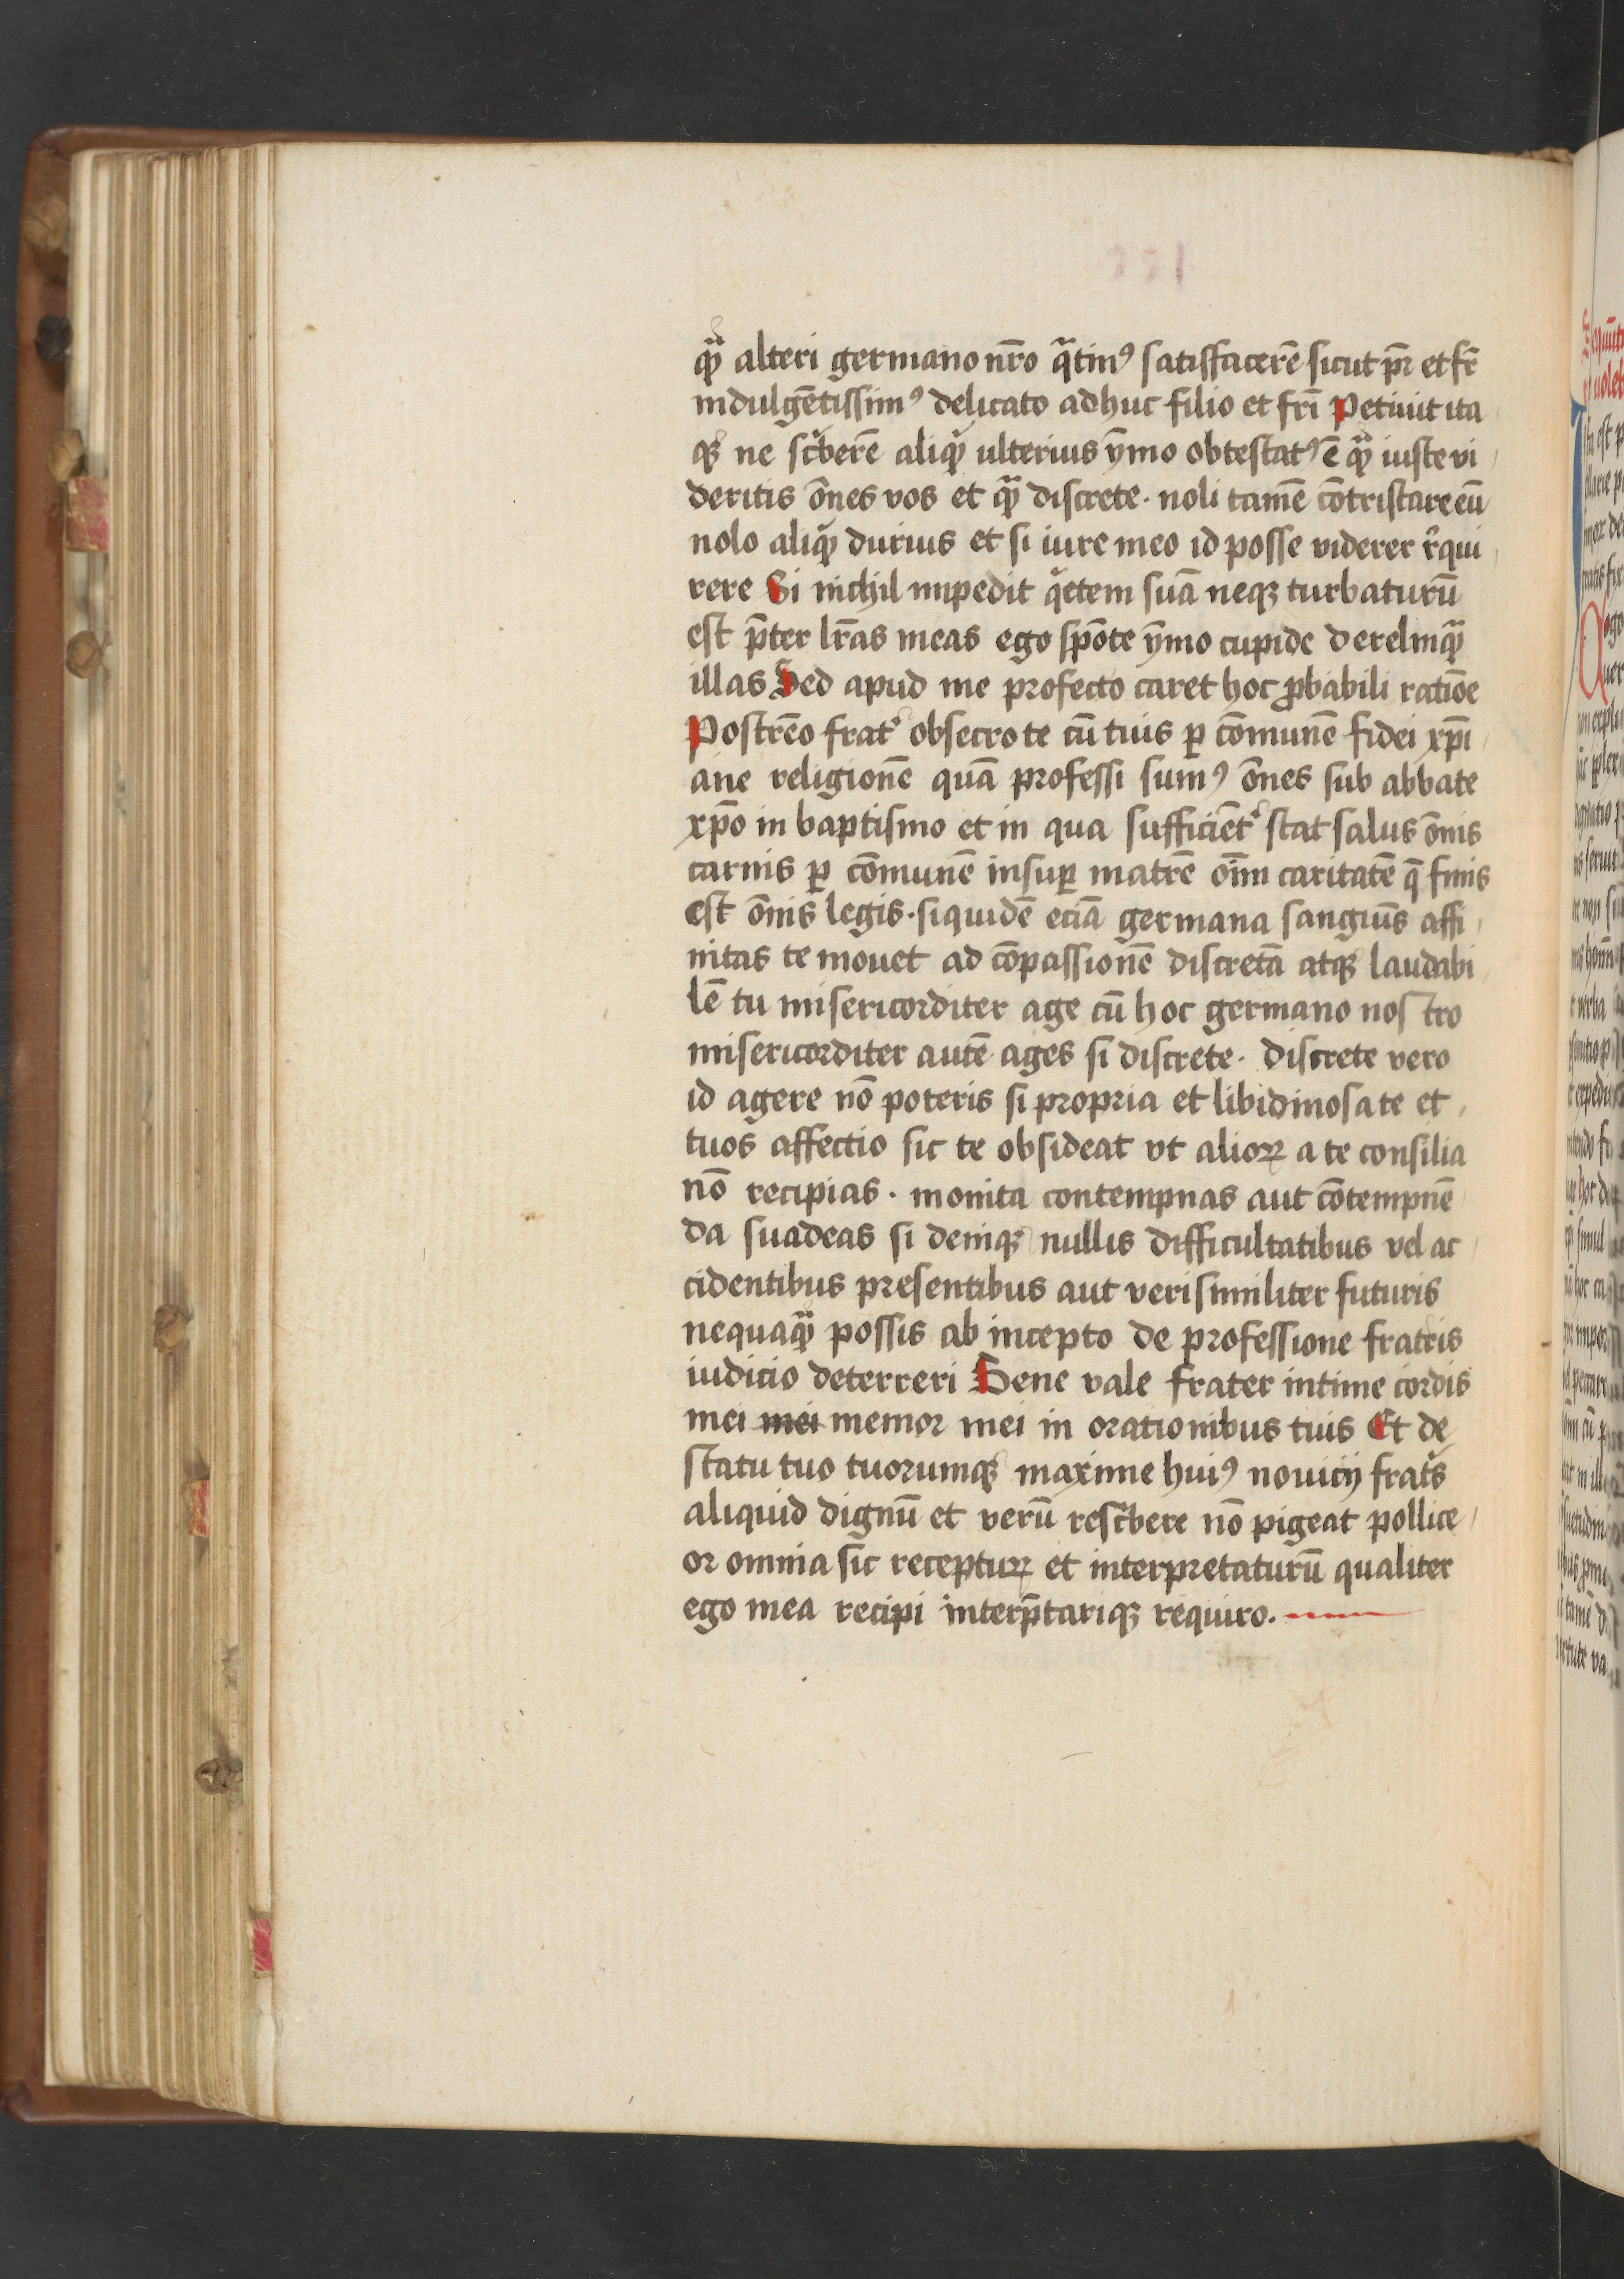 qᷓꝫ alteri germano nr̄o qᷓtinꝰ satisfacerē sicut pr̄ et fr̄
indulgētissimꝰ delicato adhuc filio et fr̄i Petiuit ita
qꝫ ne sc̄berē aliqͥd ulterius ȳmo obtestatꝰ ē qᷓꝫ iuste vi
deritis ōnes vos et qᷓꝫ discrete · noli tamē cōtristare eū
nolo aliqͥd durius et si iure meo id posse viderer r̄qui
rere Si nichil impedit qͥetem suā neqꝫ turbaturū
est p̄ter lr̄as meas ego spōte ȳmo cupide derelinqᷓꝫ
illas Sed apud me profecto caret hoc ꝓbabili ratiōe
Postrēo frat᷒ obsecro te cū tuis ꝑ cōmunē fidei xp̄i
āne religionē quā professi sumꝰ ōnes sub abbate
xp̄o in baptismo et in qua sufficiēt᷒ stat salus ōnis
carnis ꝑ cōmunē insuꝑ matrē oīm caritatē q̄ finis
est ōnis legis · siquidē eciā germana sanguīs affi
nitas te mouet ad cōpassionē discretā atqꝫ laudabi
lē tu misericorditer age cū hoc germano nostro
misericorditer autē ages si discrete · discrete vero
id agere nō poteris si propria et libidinosa te et
tuos affectio sic te obsideat vt alioꝝ a te consilia
nō recipias · monita contempnas aut cōtempnē
da suadeas si deniqꝫ nullis difficultatibus vel ac
cidentibus presentibus aut verisimiliter futuris
nequaqᷓꝫ possis ab incepto de professione fratris
iudicio deterreri Bene vale frater intime cordis
mei mei memor mei in orationibus tuis Et de
statu tuo tuorumqꝫ maxime huiꝰ nouicij frat᷒s
aliquid dignū et verū resc̄bere nō pigeat pollice
or omnia sic receptuꝝ et interpretaturū qualiter
ego mea recipi interp̄tariqꝫ requiro.